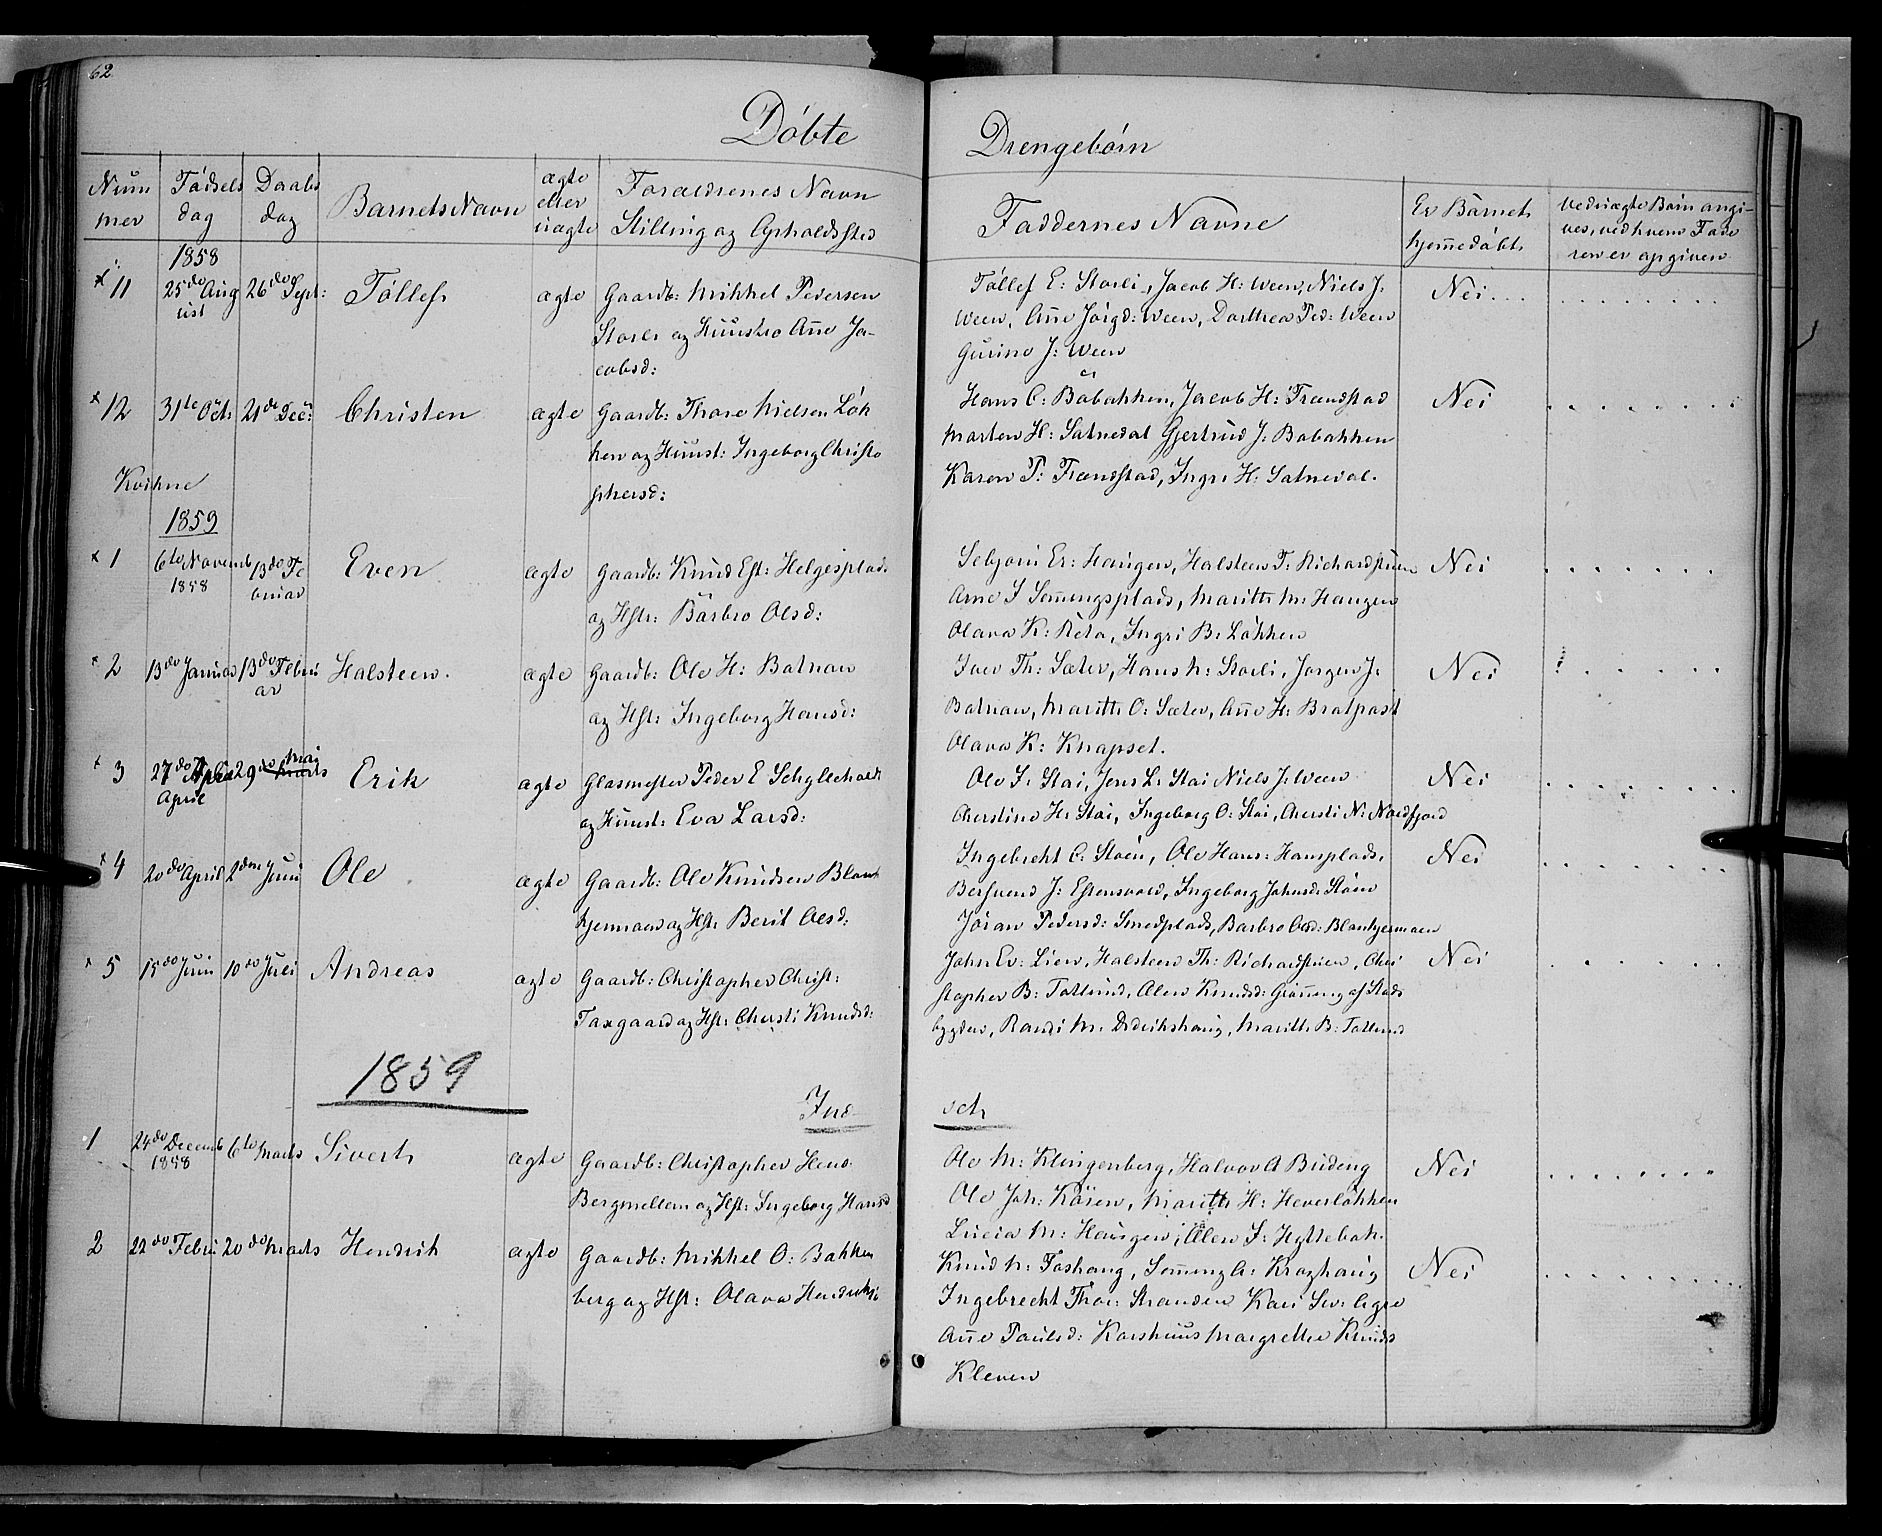 62
Döbte Drengebörn
Num mer
Födsels dag
Daabs dag
Barnets Navn
ægte eller uægte
Forældrenes Navn Stilling og Opholdssted
Faddernes Navne
Er Barnet hjemedöbt
Ved uægte Börn angi-
ves, ved hvem Fade
ren er opgiven
1858
11 25de Aug ust 26de Sept: Tollef ægte Gaardb: Mikkel Pedersen
Storli og Hustro Ane Ja-
cobsd:
Tollef E: Storli, Jacob H: Ween, Niels J:
Ween, Ane Jörgd: Ween, Dorthea Ped: Ween
Gurine J: Ween
Nei
12 31te Oct: 21de Dec: Christen ægte Gaardb: Thore Nielsen Lök
ken og Hust: Ingeborg Christo
phersd:
Hans C: Bobakken, Jacob H: Frenstad
Morten H: Satnedal Gjertrud J: Bobakken
Karen P: Frenstad, Ingri H: Satnedal.
Nei
Kvikne
1859
1 6te Novemb 1858 13de Fe bruar Even ægte Gaardb: Knud Est: Helgesplads
og Hstr: Barbro Olsd:
Er: Haugen, Halsteen T:
Arne Semmingsplads, Marith M: Haugen
Olava K: Ingri B: Lökken
Nei
2 13de Januar 13de Febru ar Halsteen. ægte Gaardb: Ole H: Botnan
og Hst: Ingeborg Hansd:
Iver Th: Sæter, Hans N: Storli, Jorgen J:
Botnan, Marith O: Sæter, Ane H: Bratpast
Olava K: Knapset.
Nei
3 27de April 29de Mai Erik ægte Glasmester Peder E
og Hust: Eva Larsd:
Ole J: Stai, Jens L: Stai Niels J: Ween
Cherstine H: Stai, Ingeborg O: Stai, Chersti N: Nordfjord
Nei
4 20de April 2den Juni Ole ægte Gaardb: Ole Knudsen Blank
kjernmoen og Hst: Berit Olsd:
Ingebrekt C: Stöen, Ole Hans: Hansplads.
Bersvend J: Estensvold, Ingeborg Johnsd: Stöen
Jöran Pedersd: Smedplads, Barbro Olsd: Blankjernmoen
Nei
5 15de Juni 10de Juli Andreas ægte Gaardb: Christopher Christ:
Taxgaard og Hst: Chersti Knudsd:
John Ev: Lien, Halsteen Th: Chri
stopher B: Tollund, Alen Knudsd: af Stads
bygden, Randi M: Didrikshaug, Marith B: Tollund
Nei
1859
Ind- set
1 24de Decemb 1858 6te Marts Sivert ægte Gaardb: Christopher Hens
Bergmellem og Hst: Ingeborg Hansd
Ole M: Klingenberg, Halvor A Budeng
Ole Joh: Kösen, Marith H: Heverlökken
Lucia M: Haugen, Alen J: Hyttebak.
Nei
2 22de Febru 20de Marts Hendrik ægte Gaardb: Mikkel O: Bakken
berg og Hst: Olava Hendriksd
Knud N: Foshaug, Semming A: Kroghaug
Ingebrecht Thor: Stranden Kari Siv: Agre
Ane Paulsd: Korshuus Margrethe Knuds
Kleven
Nei